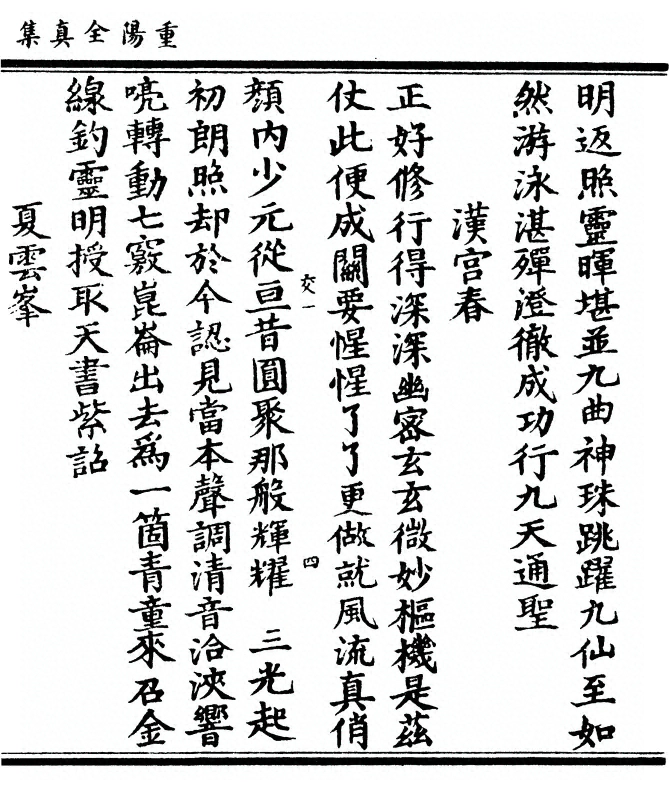 重陽全真集
明返照靈暉堪並九曲神珠跳躍九仙至如
然游泳湛殫澄徹成功行九天通聖
漢宮春
正好修行得深深幽密玄玄微妙樞機是茲
仗此便成關要惺惺了了更做就風流真俏
交一 四
顏內少元從亘昔圓聚那般輝耀 三光起
初朗照却於今認見當本聲調清音洽浹響
喨轉動七竅崑崙出去爲一箇青童來召金
線釣靈明授取天書紫詔
夏雲峯